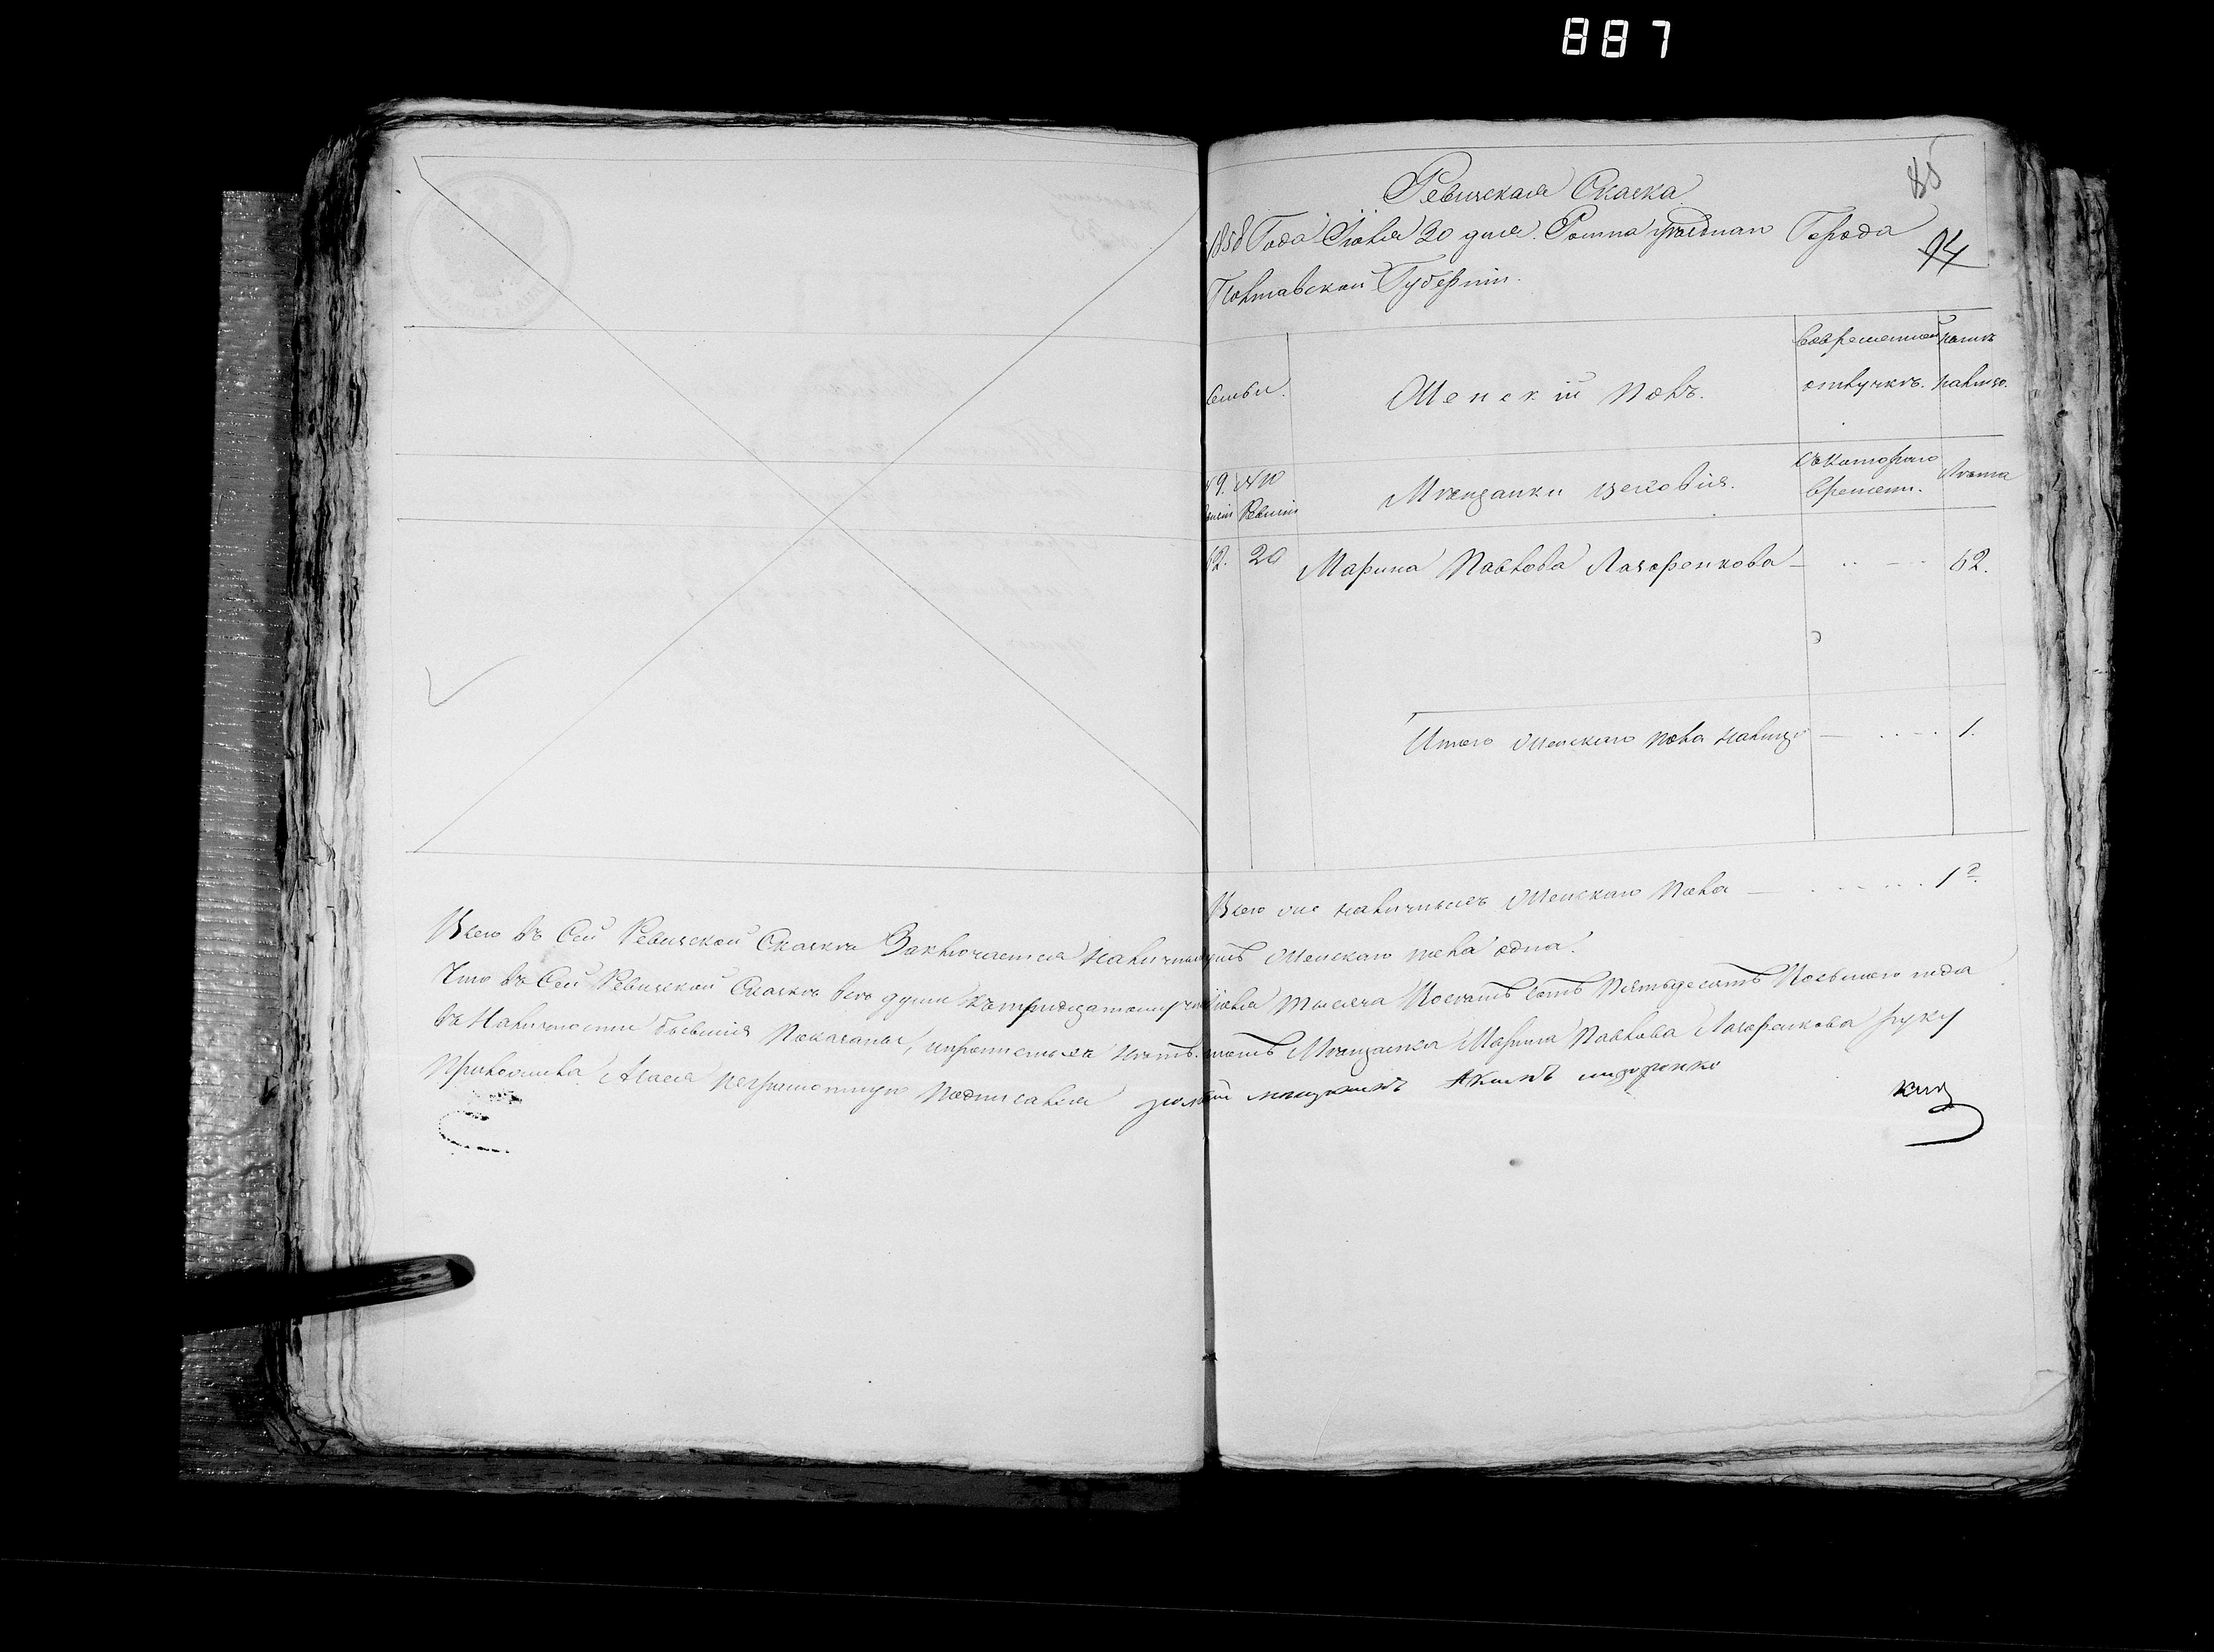 887
85
Ревизская Сказка
1858 Года Июля 30 дня. Ромна уезднаго Города 94
Полтавской Губерніи.
Семьи.
Женскій полъ.
Во временной отлучкѣ.
налицо.
№ 9. №10 Ревизіи
Мѣщанки цеховія.
Съ котораго времени.
Лѣта
62. 20 Марина Павлова Лазоренкова — 62.
Итого женскаго пола налицо — 1.
Всего же наличныхъ женскаго пола — 1
Всего въ Сей Ревизской Сказкѣ Заключается наличныхъ душъ женскаго пола одна.
Что въ Сей Ревизской Сказкѣ всѣ души къ тридцатому числу Іюля тысяча восемь сотъ пятьдесятъ восьмого года
въ наличности бывшія показаны, и прописныхъ нѣтъ. въ томъ Мѣщанка Марина Павлова Лазоренкова руку
приложила А за ея неграмотную подписался мѣщанинъ Акимъ